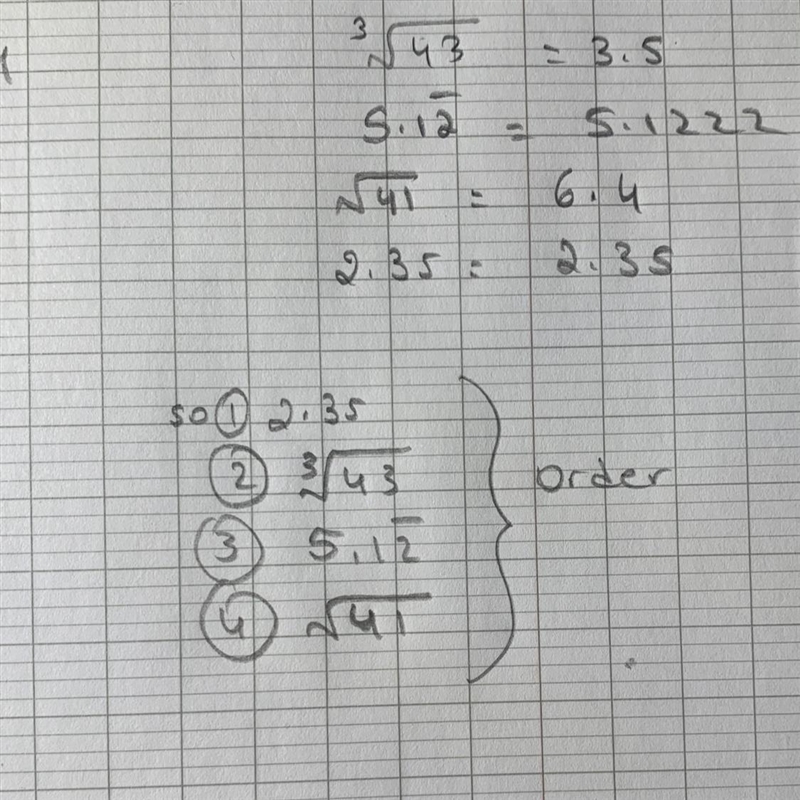 ∛43 = 3.5
5.12̅ = 5.1222
√41 = 6.4
2.35 = 2.35
so ① 2.35
② ∛43
③ 5.12̅
④ √41
order